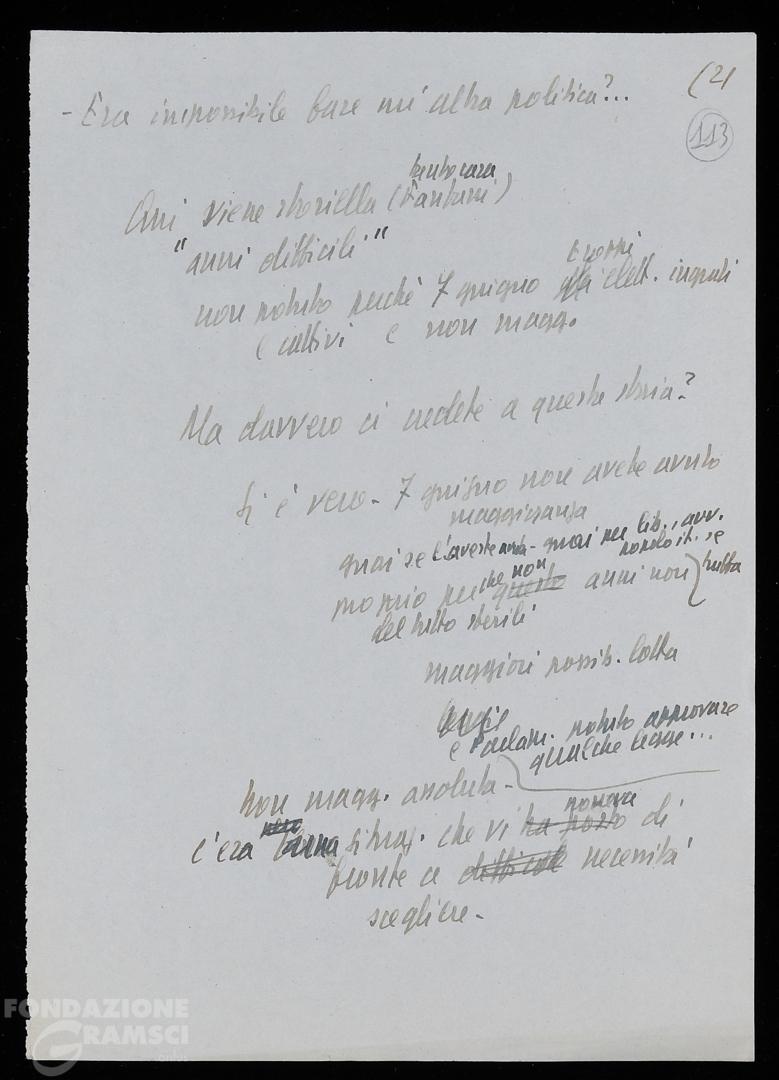 (2)
113
- Era impossibile fare un'altra politica?...
Qui viene storiella (Fanfani)
tanto cara
"anni difficili"
non potuto perché 7 giugno elett. ingrati
e cattivi e non magg.
Ma davvero ci credete a questa storia?
Sì è vero - 7 giugno non avete avuto
maggioranza
guai se l'aveste avuta - guai per lib., avv.
popolo it. se
proprio per che non questo anni non tutta
del tutto sterili
maggiori possib. lotta
e Parlam. potuto approvare
qualche legge...
Non magg. assoluta -
c'era una situaz. che vi ha posto di
poneva
fronte a difficile necessità
scegliere -
FONDAZIONE
GRAMSCI
onlus